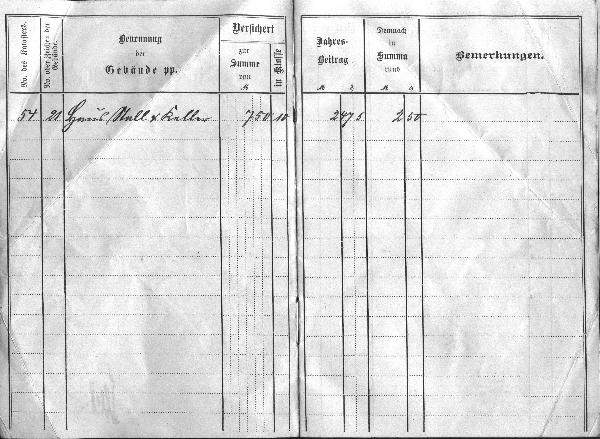 No. des Katasters.
No. oder Zeichen der Gebäude.
Benennung
der
Gebäude pp.
Versichert
zur
Summe
von
M
in Klasse
Jahres-
Beitrag
M ₰
Demnach
in
Summa
rund
M ₰
Bemerkungen.
54 21 Haus Stall & Keller 750 10 2 475 2 50